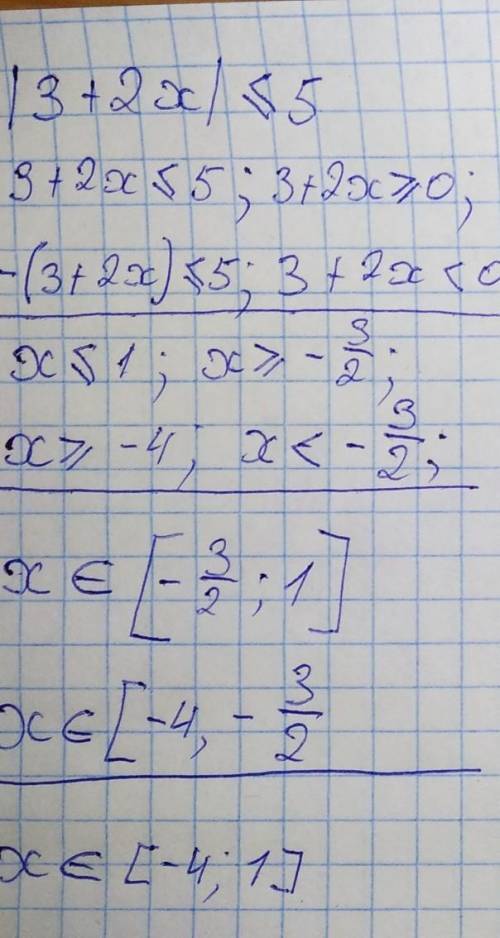 |3+2x| ⩽ 5
3+2x ⩽ 5; 3+2x ⩾ 0;
-(3+2x) ⩽ 5; 3+2x < 0
x ⩽ 1; x ⩾ -3/2;
x ⩾ -4; x < -3/2;
x ∈ [-3/2; 1]
x ∈ [-4, -3/2
x ∈ [-4; 1]